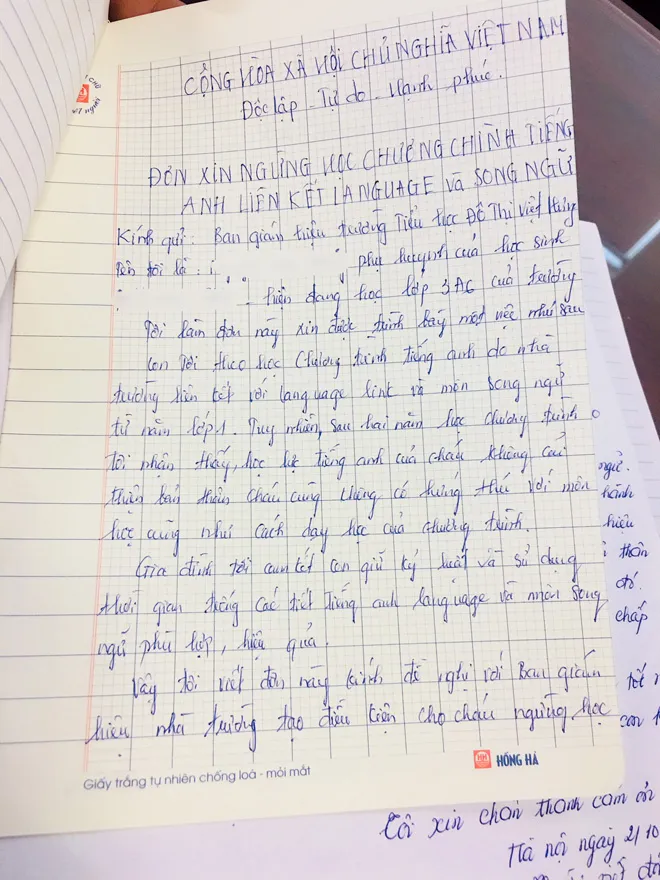 CỘNG HÒA XÃ HỘI CHỦ NGHĨA VIỆT NAM
Độc lập - Tự do - Hạnh phúc.
ĐƠN XIN NGỪNG HỌC CHƯƠNG CHÌNH TIẾNG
ANH LIÊN KẾT LANGUAGE và SONG NGỮ
Kính gửi: Ban giám hiệu trường Tiểu học Đô Thị Việt Hưng
Tên tôi là :
phụ huynh của học sinh
hiện đang học lớp 3A6 của trường
Tôi làm đơn này xin được trình bày một việc như sau
Con tôi theo học Chương trình tiếng anh do nhà
trường liên kết với language link và môn song ngữ
từ năm lớp 1. Tuy nhiên, sau hai năm học chương trình
tôi nhận thấy, học lực tiếng anh của cháu không cải
thiện bản thân cháu cũng không có hứng thú với môn
học cũng như cách dạy học của chương trình.
Gia đình tôi cam kết con giữ kỷ luật và sử dụng
thời gian trống các tiết tiếng anh language và môn song
ngữ phù hợp, hiệu quả.
Vậy tôi viết đơn này kính đề nghị với Ban giám
hiệu nhà trường tạo điều kiện cho cháu ngừng học
Giấy trắng tự nhiên chống loá - mỏi mắt
HỒNG HÀ
ngữ.
hành
hiệu
thân
đó.
chấp
tốt
con
Tôi xin chân thành cảm ơn
Hà nội ngày 21/10